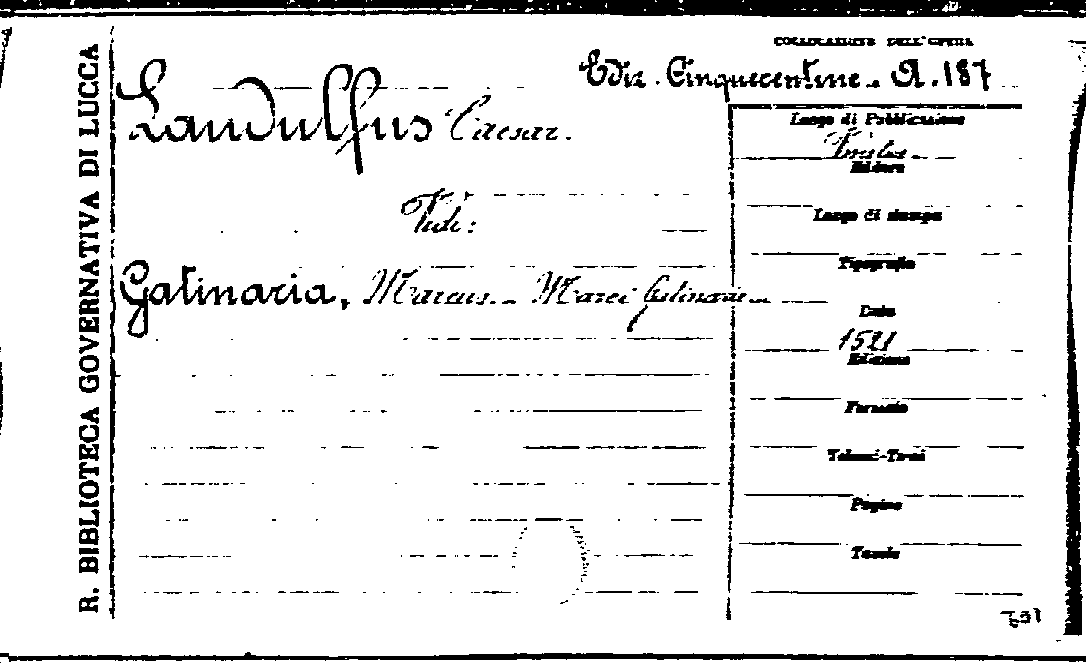 R. BIBLIOTECA GOVERNATIVA DI LUCCA
COLLOCAZIONE DELL'OPERA
Ediz. Cinquecentine. A.187
Landulfus Caesar.
Vidi:
Gatinaria, Marcus. - Marci Gatinariae -
Luogo di Pubblicazione
Editore
Luogo di stampa
Tipografia
Data
1521
Edizione
Formato
Volumi-Tomi
Pagine
Tavole